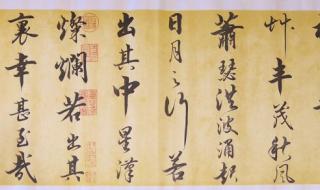 艸丰茂秋風
蕭瑟洪波涌起
日月之行若
出其中星漢
燦爛若出其
裏幸甚至哉